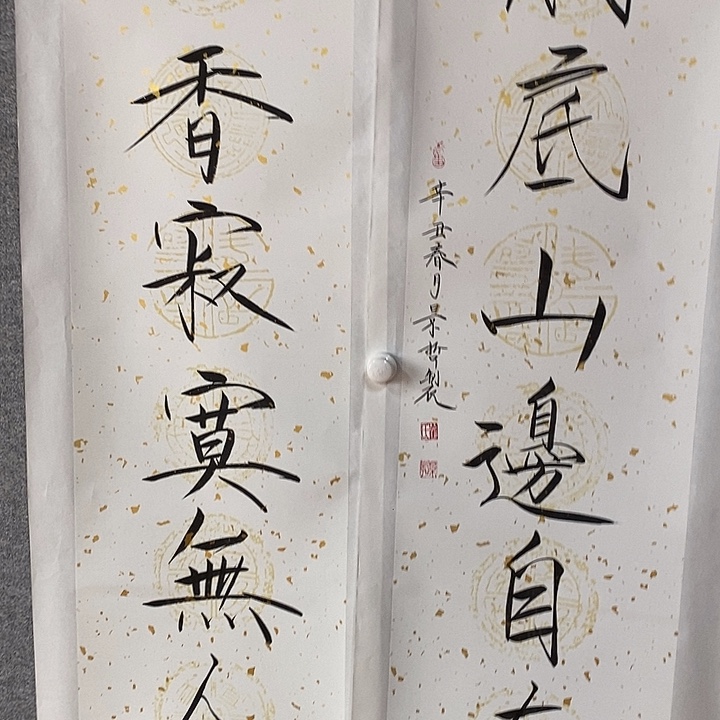 底山邊自
辛丑春月景哲製
香寂寞無人